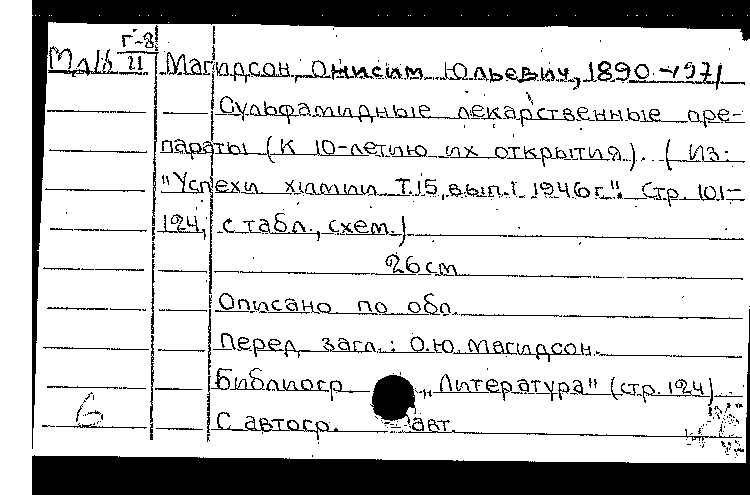 Г-8
МдІб 21 Магидсон, Онисим Юльевич, 1890-1971
Сульфамидные лекарственные пре-
параты (К 10-летию их открытия). (Из:
"Успехи химии Т.15, вып.1 1946г". Стр. 101-
124, с табл., схем.)
26см
Описано по обл.
Перед загл.: О.Ю. Магидсон.
Библиогр. „Литература" (стр. 124)
6 С автогр. авт.